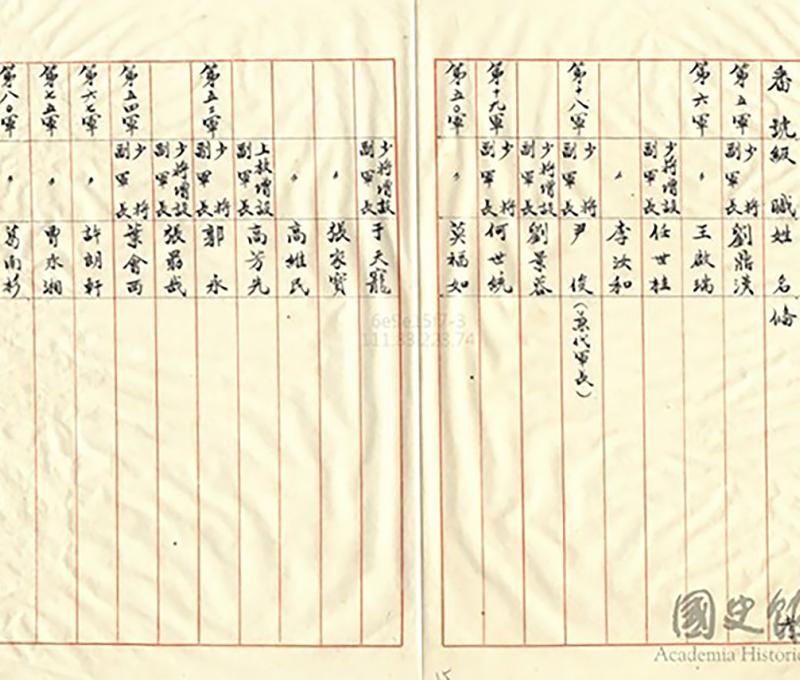 番號級職姓名備
第五軍 少將副軍長 劉鼎漢
第六軍 〃 王啟瑞
少將增設副軍長 任世桂
〃 李汝和
第十八軍 少將副軍長 尹俊(兼代軍長)
少將增設副軍長 劉景蓉
第十九軍 少將副軍長 何世統
第五〇軍 〃 莫福如
少將增設副軍長 于天寵
〃 張家寶
〃 高維民
上校增設副軍長 高芳先
第五二軍 少將副軍長 郭永
少將增設副軍長 張
第五四軍 少將副軍長 葉會西
第六七軍 〃 許朗軒
第七五軍 〃 曹永湘
第八〇軍 〃 葛南杉
6e9e15f7-3
111.83.223.74
國史館
Academia Historic
15